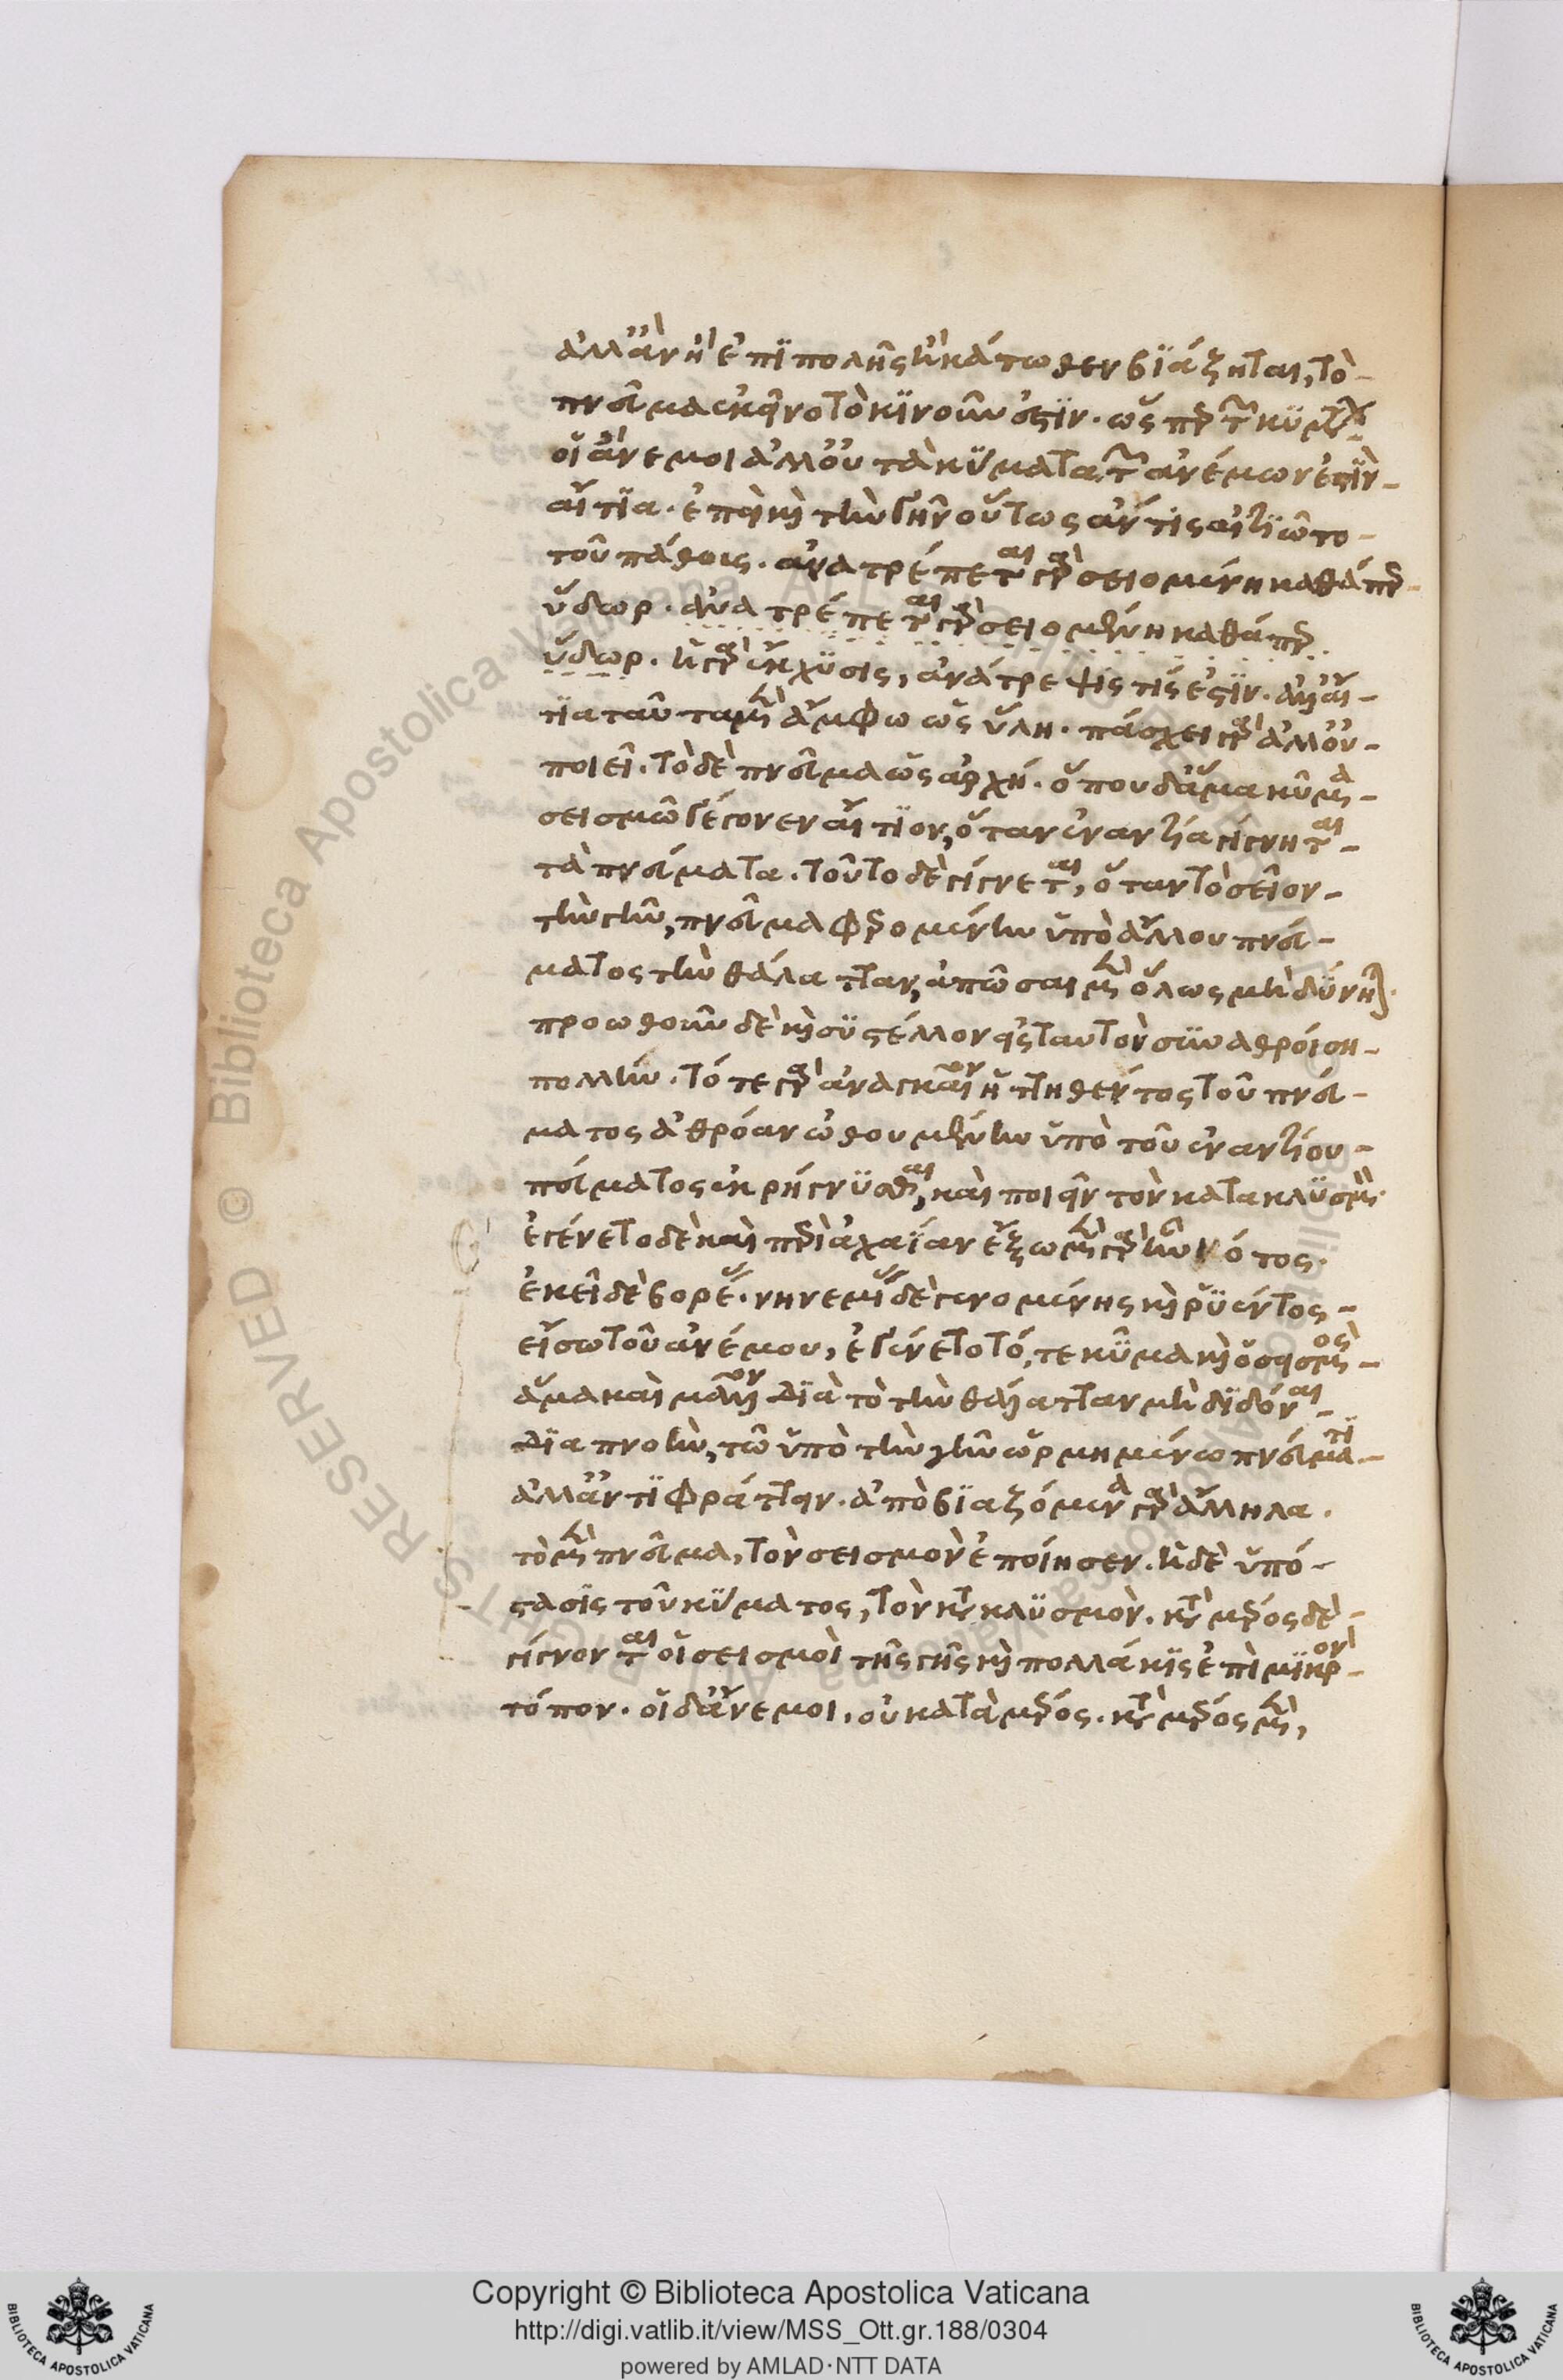 ἀλλ' ἂν ἢ ἐπιπολῆς ἢ κάτωθεν βιάζηται, τὸ
πνεῦμα ἐκεῖνο τὸ κινοῦν ἐστιν. ὥσπερ τῶν κυμάτων
οἱ ἄνεμοι ἀλλ' οὐ τὰ κύματα τῶν ἀνέμων ἐστὶν
αἴτια. ἐπεὶ καὶ τὴν γῆν οὕτως ἄν τις αἰτιῶτο
τοῦ πάθους. ἀνατρέπεται γὰρ σειομένη καθάπερ
ὕδωρ. ἀνατρέπεται γὰρ σειομένη καθάπερ
ὕδωρ. ἡ γὰρ ἔκχυσις, ἀνάτρεψίς τίς ἐστιν. ἀλλ' αἴ
τια ταῦτα μὲν ἄμφω ὡς ὕλη. πάσχει γὰρ ἀλλ' οὐ
ποιεῖ. τὸ δὲ πνεῦμα ὡς ἀρχή. ὅπου δ' ἅμα κῦμα
σεισμῶ γέγονεν αἴτιον, ὅταν ἐναντία γίγνηται
τὰ πνεύματα. τοῦτο δὲ γίγνεται, ὅταν τὸ σεῖον
τὴν γῆν, πνεῦμα φερομένην ὑπὸ ἄλλου πνεύ
ματος τὴν θάλατταν, ἀπῶσαι μὲν ὅλως μὴ δύνηται.
προωθοῦν δὲ καὶ συστέλλον εἰς ταυτὸν συναθροίση
πολλήν. τότε γὰρ ἀναγκαῖον ἡττηθέντος τοῦ πνεύ
ματος ἀθρόαν ὠθουμένην ὑπὸ τοῦ ἐναντίου
πνεύματος ἐκρήγνυσθαι, καὶ ποιεῖν τὸν κατακλυσμόν.
ἐγένετο δὲ καὶ περὶ ἀχαΐαν ἔξω μὲν γὰρ ἦν νότος.
ἐκεῖ δὲ βορέας. νηνεμίας δὲ γενομένης καὶ ῥυέντος
εἴσω τοῦ ἀνέμου, ἐγένετο τό, τε κῦμα καὶ ὁ σεισμὸς
ἅμα καὶ μᾶλλον διὰ τὸ τὴν θάλατταν μὴ διδόναι
διαπνοὴν, τῶ ὑπὸ τὴν γῆν ὡρμημένω πνεύματι
ἀλλ' ἀντιφράττειν. ἀποβιαζόμενα γὰρ ἄλληλα.
τὸ μὲν πνεῦμα, τὸν σεισμὸν ἐποίησεν. ἡ δὲ ὑπό
στασις τοῦ κύματος, τὸν κατακλυσμόν. κατὰ μέρος δὲ
γίγνονται οἱ σεισμοὶ τῆς γῆς καὶ πολλάκις ἐπὶ μικρὸν
τόπον. οἱ δ' ἄνεμοι, οὐ κατὰ μέρος. κατὰ μέρος μὲν,
Copyright © Biblioteca Apostolica Vaticana
http://digi.vatlib.it/view/MSS_Ott.gr.188/0304
powered by AMLAD·NTT DATA